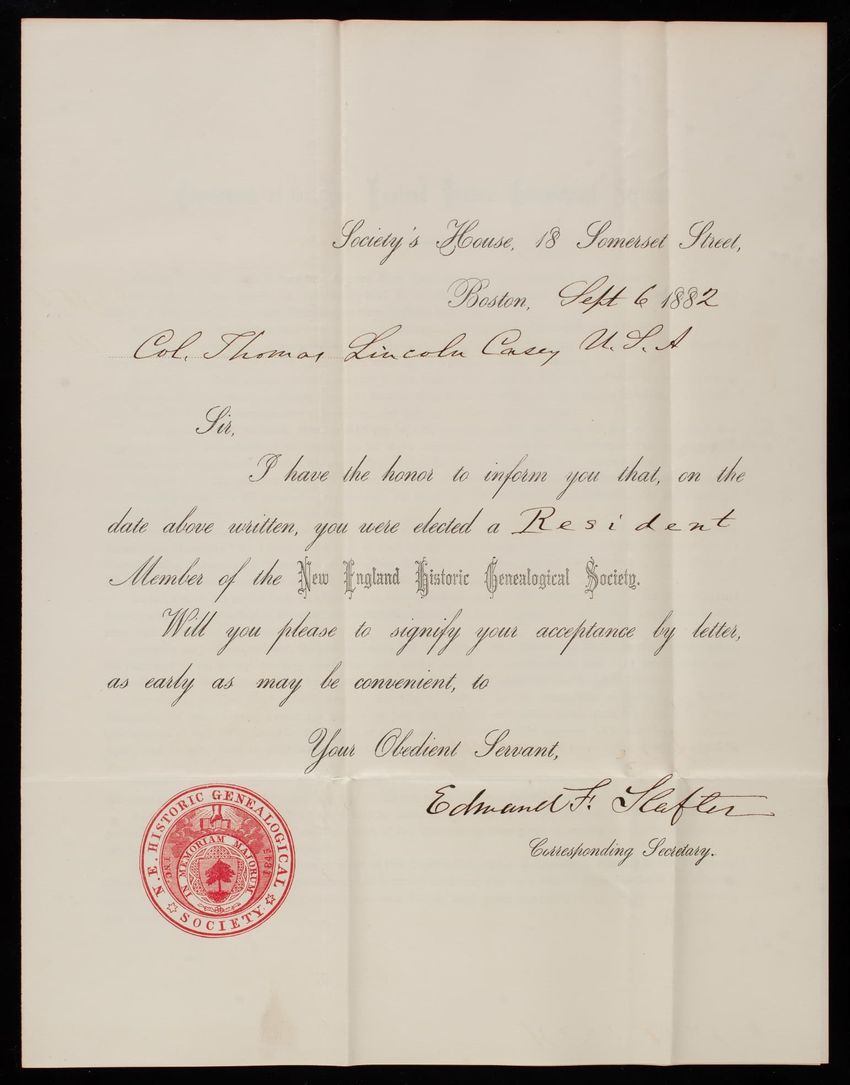 Society's House, 18 Somerset Street,
Boston, Sept 6 1882
Col. Thomas Lincoln Casey U.S.A
Sir,
I have the honor to inform you that, on the
date above written, you were elected a Resident
Member of the New England Historic Genealogical Society.
Will you please to signify your acceptance by letter,
as early as may be convenient, to
Your Obedient Servant,
Edmund F. Slafter
Corresponding Secretary.
N.E. HISTORIC GENEALOGICAL SOCIETY
IN MEMORIAM MAJORUM